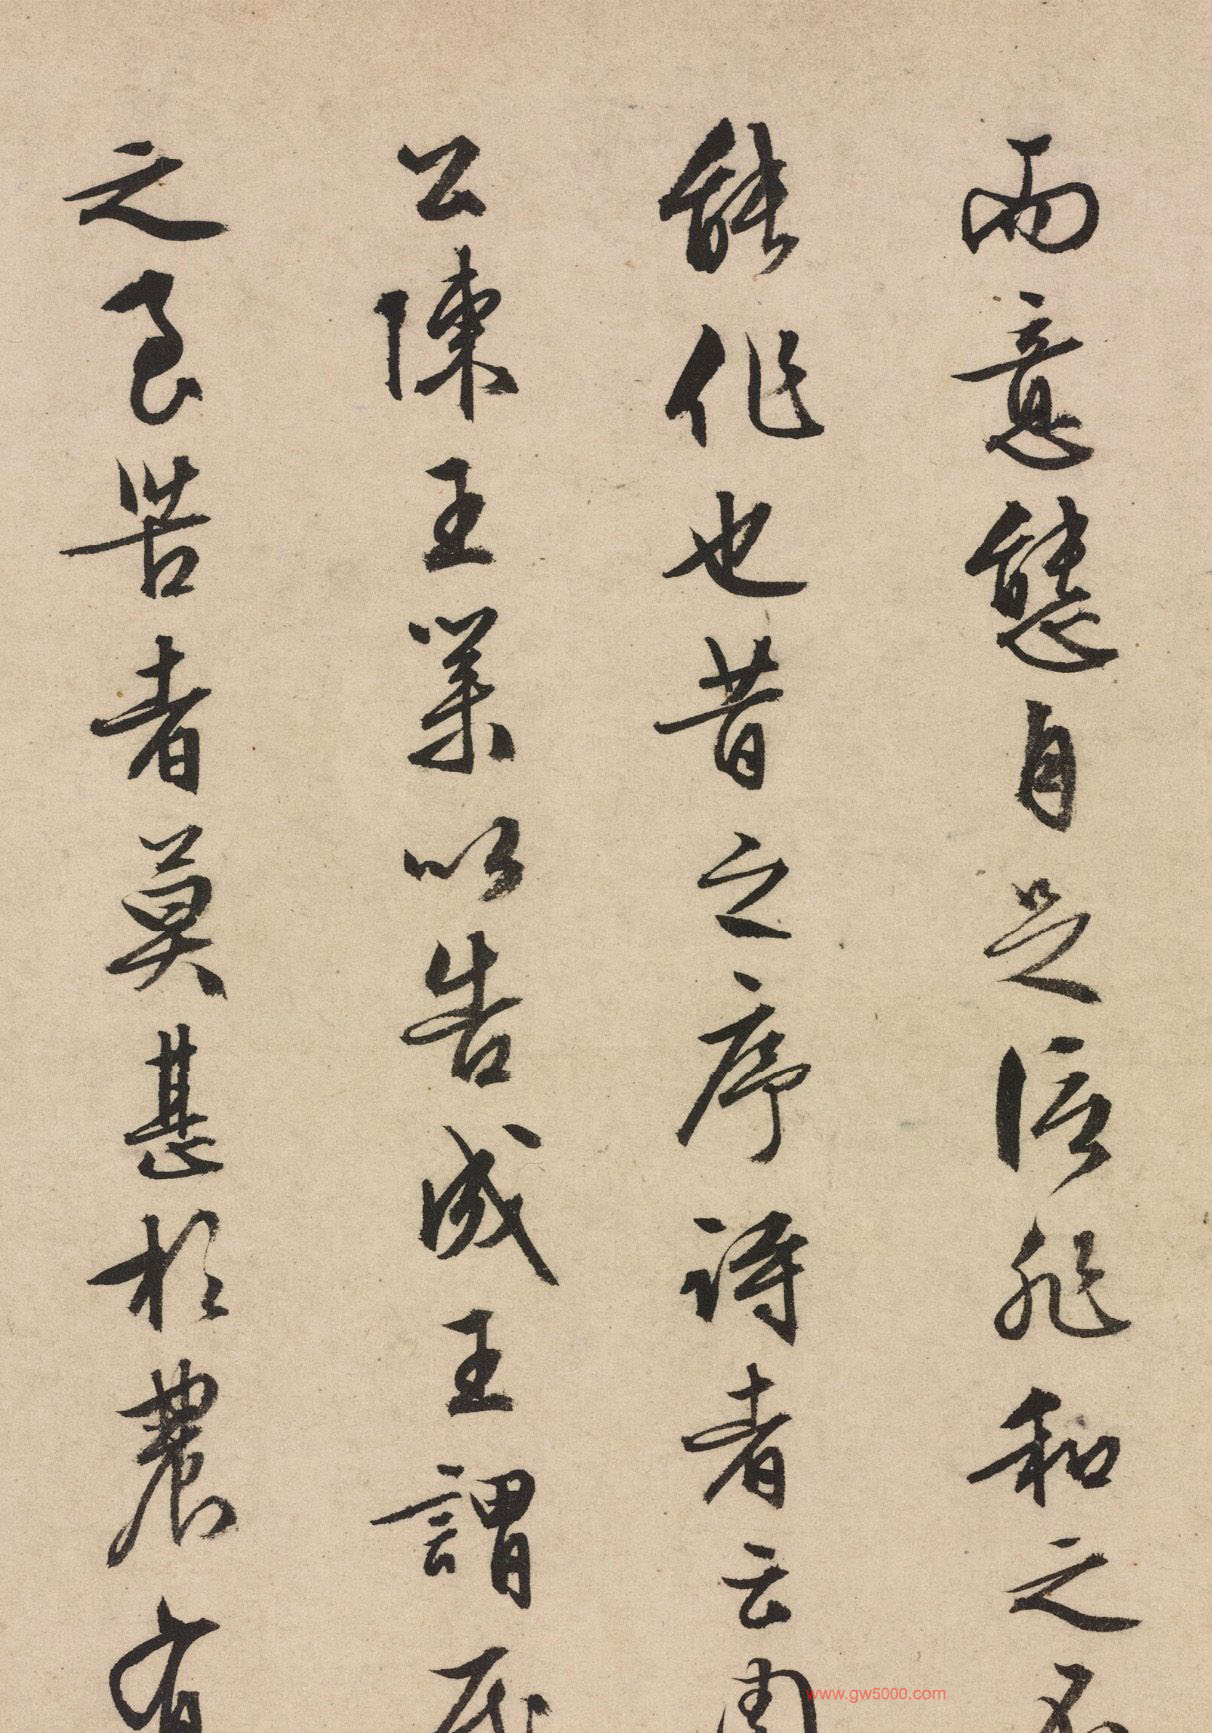 而意態自足信非和之不
能作也昔之序詩者云周
公陳王業以告成王謂民
之良苦者莫甚於農有
www.gw5000.com